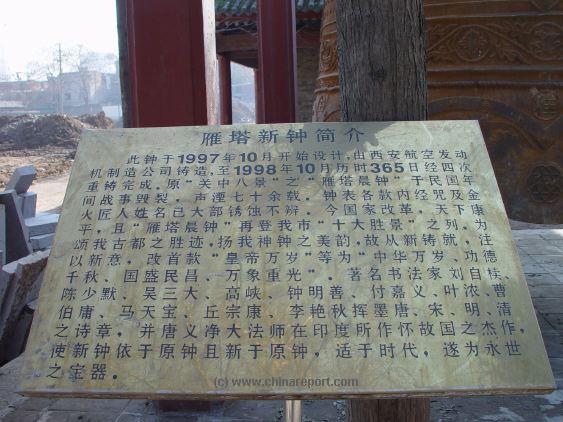 雁塔新钟简介
此钟于1997年10月开始设计，由西安航空发动
机制造公司铸造，至1998年10月历时365日经四次
重铸完成。原“关中八景”之“雁塔晨钟”于民国年
间战事毁裂，声湮七十余载。钟表各款内经咒及金
火匠人姓名已大部锈蚀不辨。今国家改革，天下康
平，且“雁塔晨钟”再登我市“十大胜景”之列，为
颂我古都之胜迹，扬我神钟之美韵，故从新铸就，注
以新意，改首款“皇帝万岁”等为“中华万岁、功德
千秋、国盛民昌、万象重光”。著名书法家刘自椟、
陈少默、吴三大、高峡、钟明善、付嘉义、叶浓、曹
伯庸、马天宝、丘宗康、李艳秋挥墨唐、宋、明、清
之诗章，并唐义净大法师在印度所作怀故国之杰作，
使新钟依于原钟且新于原钟，适于时代，遂为永世
之宝器。
(c) www.chinareport.com